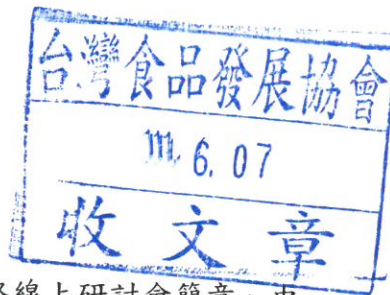 台灣食品發展協會
111. 6. 07
收文章
線上研討會簡章